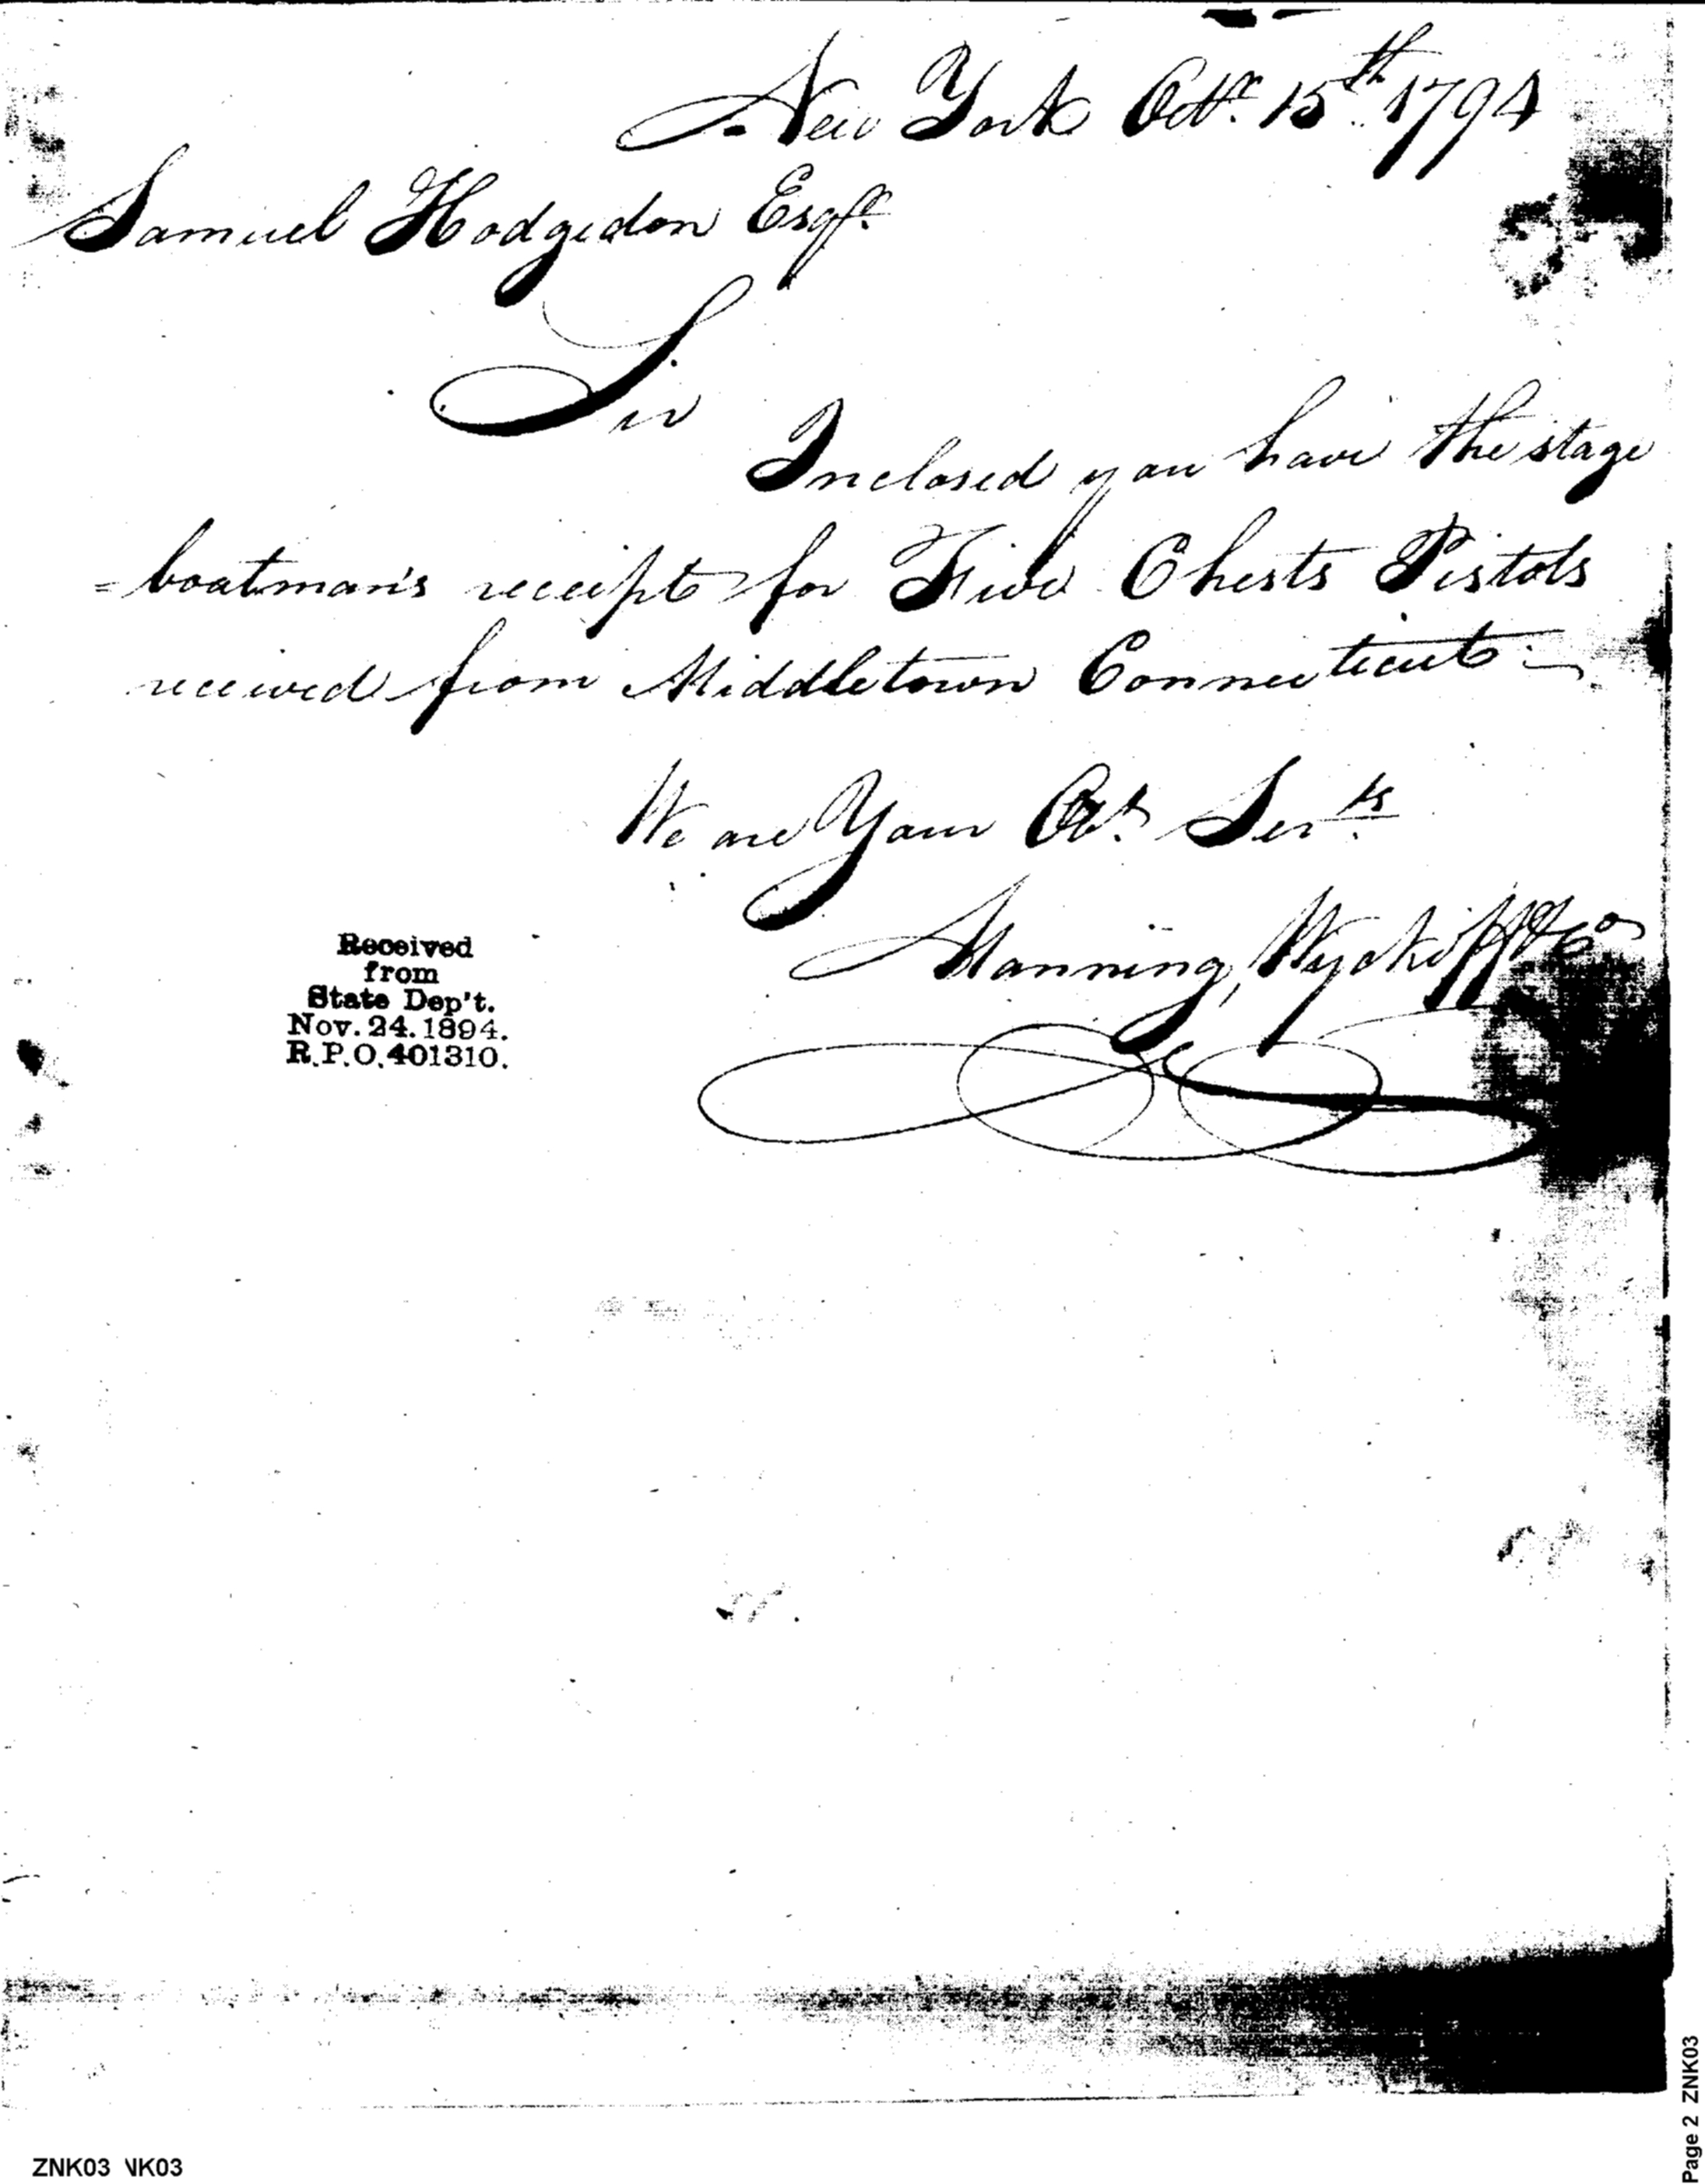 New York Octr. 15th. 1794
Samuel Hodgsdon Esqr.
Sir
Inclosed you have the stage
=boatman's receipt for Five Chests Pistols
received from Middletown Connecticut
We are Your Obt. Servts.
Manning, Wyckoff & Co
Received
from
State Dep't.
Nov. 24. 1894.
R.P.O. 401310.
Page 2 ZNK03
ZNK03